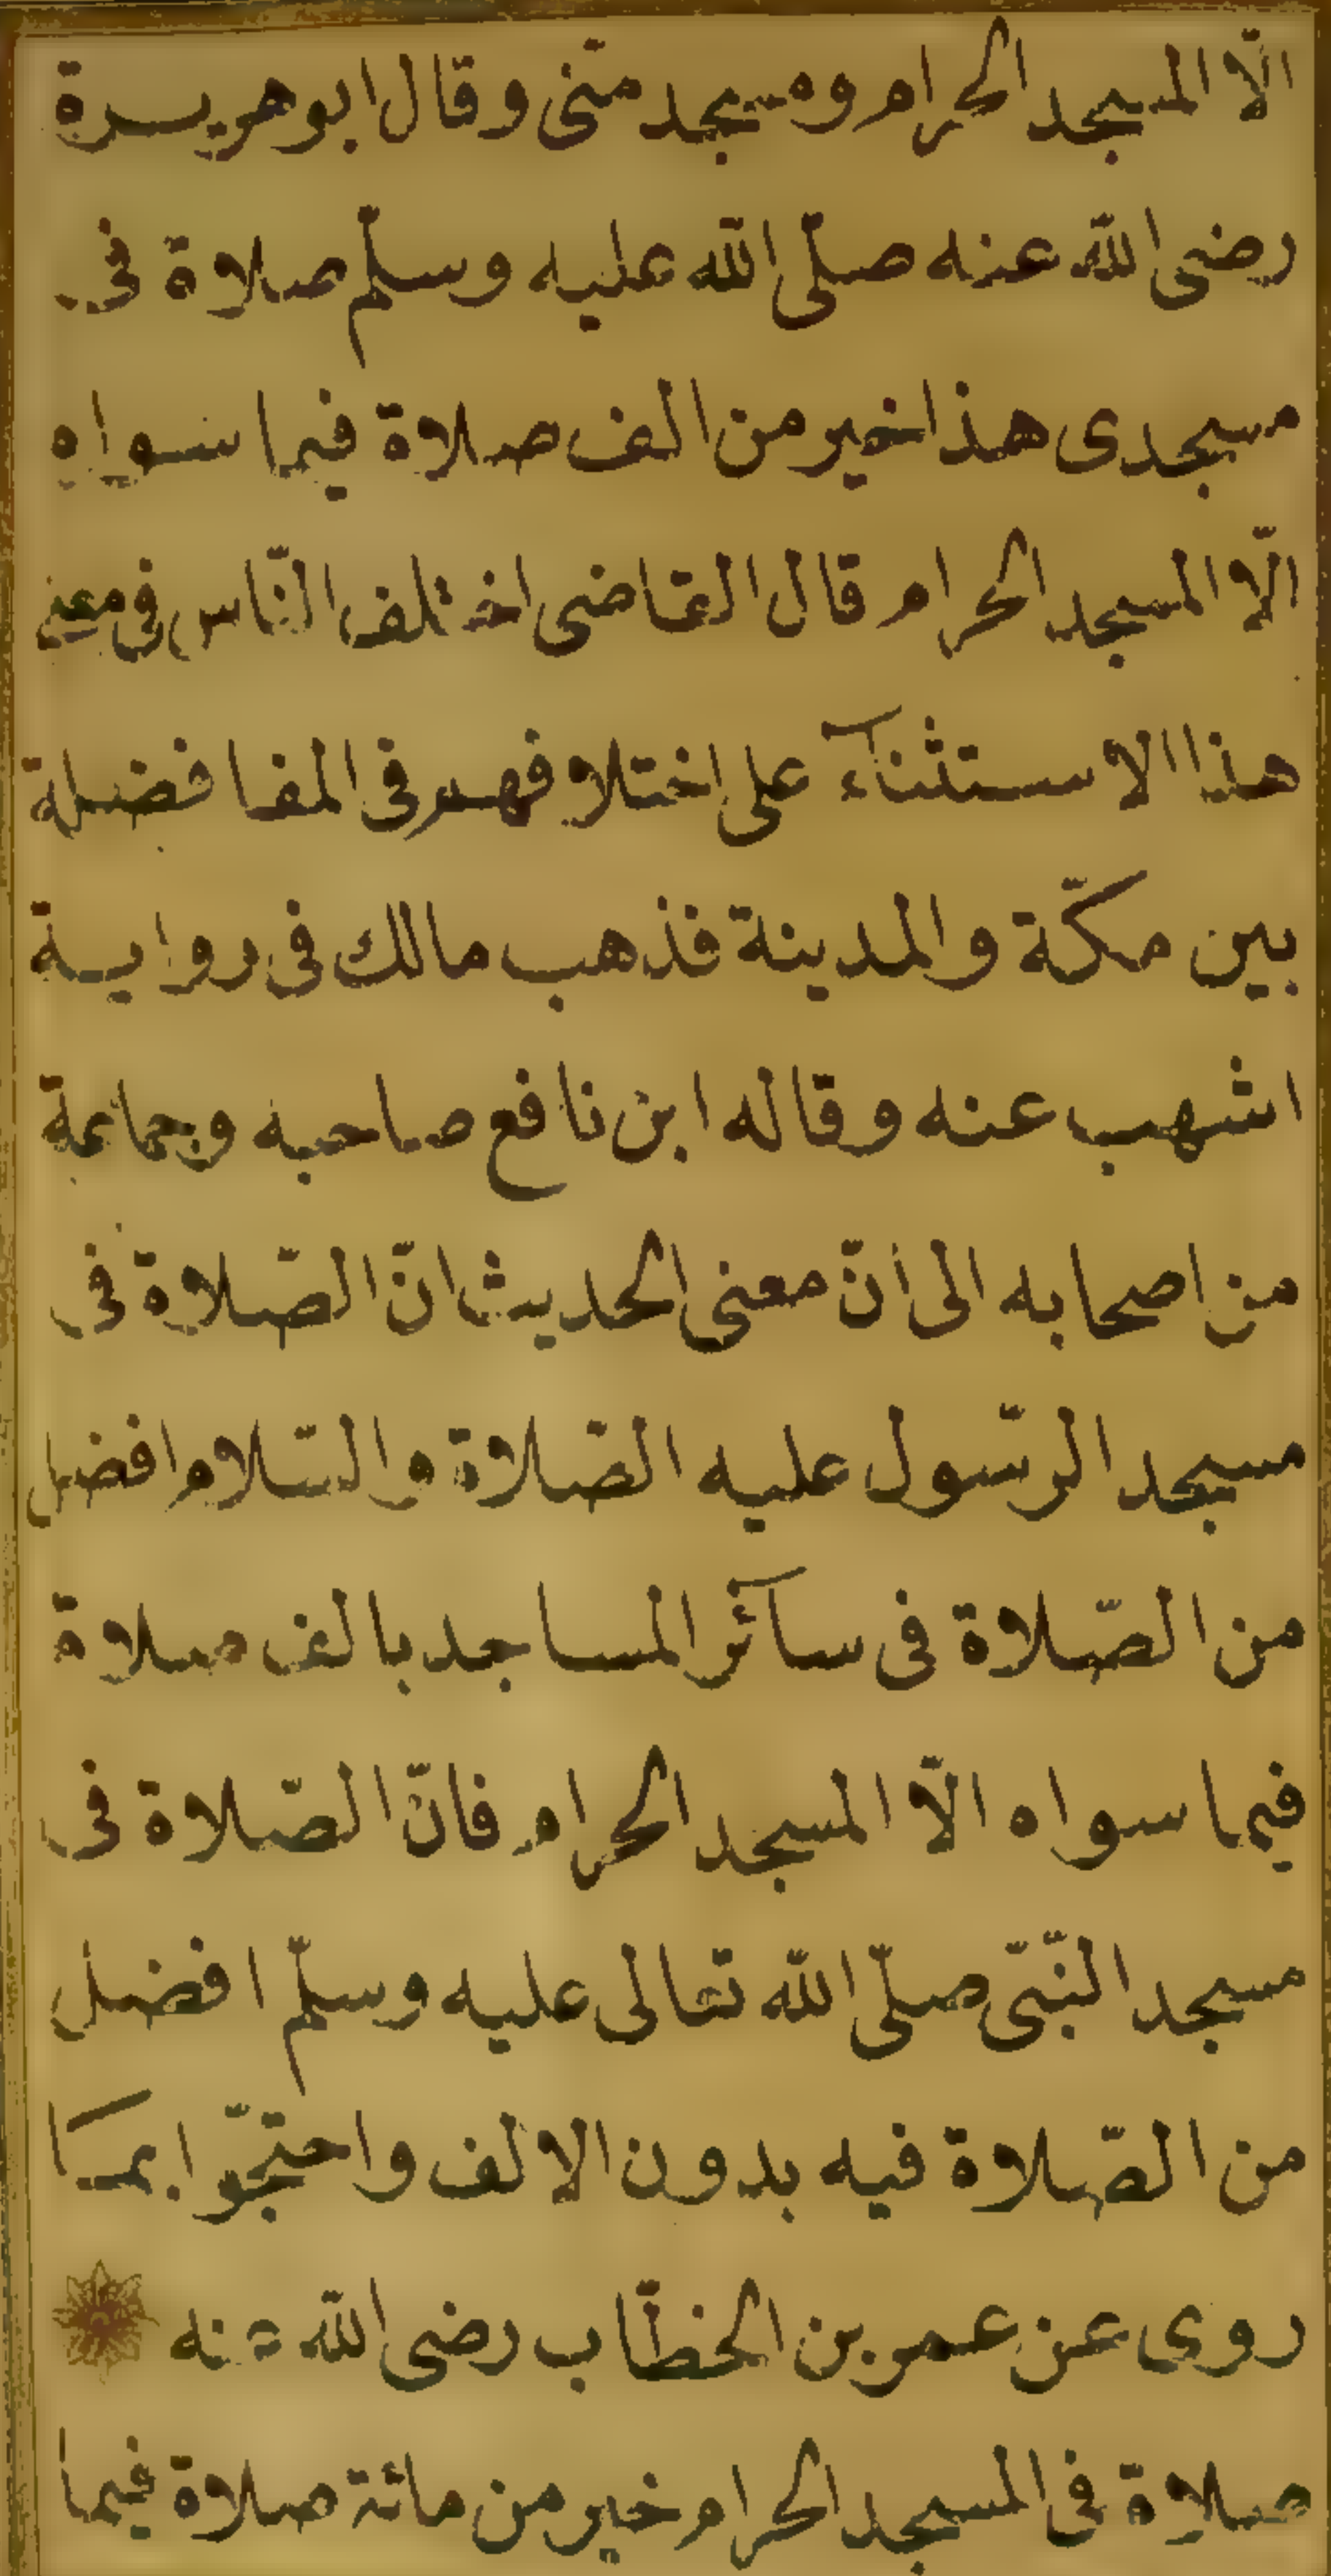 الّا المسجد الحرام ومسجد منّى وقال ابو هريرة
رضى الله عنه صلّى الله عليه وسلّم صلاة فى
مسجدى هذا خير من الف صلاة فيما سواه
الّا المسجد الحرام قال القاضى اختلف النّاس فى معنى
هذا الاستثنآء على اختلافهم فى المفاضلة
بين مكّة والمدينة فذهب مالك فى رواية
اشهب عنه وقاله ابن نافع صاحبه وجماعة
من اصحابه الى انّ معنى الحديث انّ الصّلاة فى
مسجد الرّسول عليه الصّلاة والسّلام افضل
من الصّلاة فى سآئر المساجد بالف صلاة
فيما سواه الّا المسجد الحرام فانّ الصّلاة فى
مسجد النّبىّ صلّى الله تعالى عليه وسلّم افضل
من الصّلاة فيه بدون الالف واحتجّوا بما
روى عن عمر بن الخطّاب رضى الله عنه
صلاة فى المسجد الحرام خير من مائة صلاة فيما